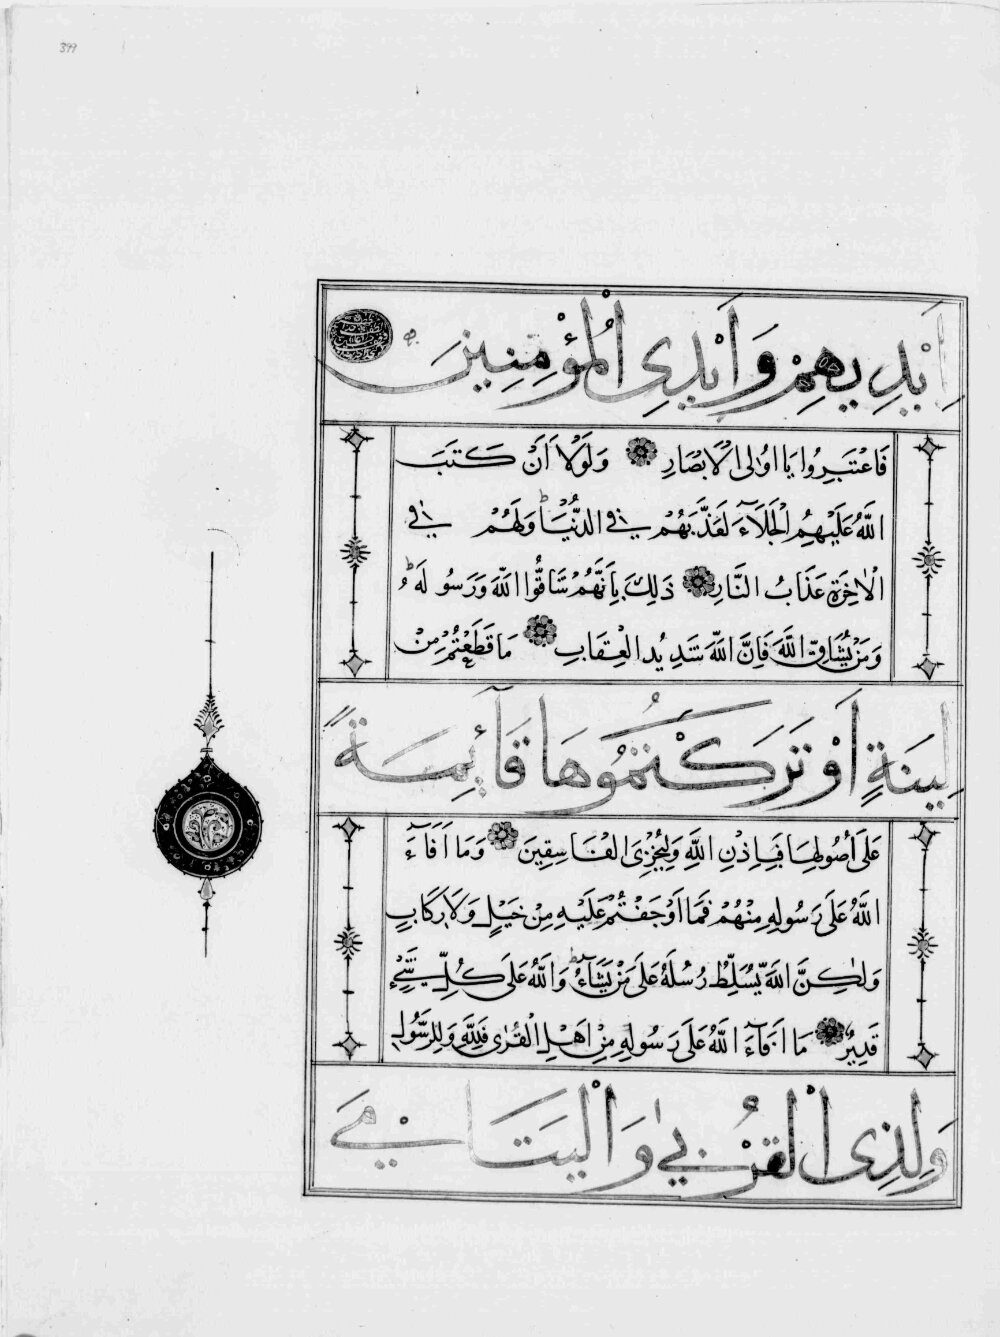 399
اَيْدِيهِمْ وَاَيْدِى الْمُؤْمِنِينَ
فَاعْتَبِرُوا يَا اُولِى الْاَبْصَارِ وَلَوْلَا اَنْ كَتَبَ
اللّٰهُ عَلَيْهِمُ الْجَلَاۤءَ لَعَذَّبَهُمْ فِى الدُّنْيَاۜ وَلَهُمْ فِى
الْاٰخِرَةِ عَذَابُ النَّارِ ذٰلِكَ بِاَنَّهُمْ شَاقُّوا اللّٰهَ وَرَسُولَهُۜ
وَمَنْ يُشَاقِّ اللّٰهَ فَاِنَّ اللّٰهَ شَدِيدُ الْعِقَابِ مَا قَطَعْتُمْ مِنْ
لِينَةٍ اَوْ تَرَكْتُمُوهَا قَاۤئِمَةً
عَلَى اُصُولِهَا فَبِاِذْنِ اللّٰهِ وَلِيُخْزِىَ الْفَاسِقِينَ وَمَا اَفَاۤءَ
اللّٰهُ عَلَى رَسُولِهِ مِنْهُمْ فَمَا اَوْجَفْتُمْ عَلَيْهِ مِنْ خَيْلٍ وَلَا رِكَابٍ
وَلٰكِنَّ اللّٰهَ يُسَلِّطُ رُسُلَهُ عَلَى مَنْ يَشَاۤءُۜ وَاللّٰهُ عَلَى كُلِّ شَيْءٍ
قَدِيرٌ مَا اَفَاۤءَ اللّٰهُ عَلَى رَسُولِهِ مِنْ اَهْلِ الْقُرٰى فَلِلّٰهِ وَلِلرَّسُولِ
وَلِذِى الْقُرْبٰى وَالْيَتَامٰى